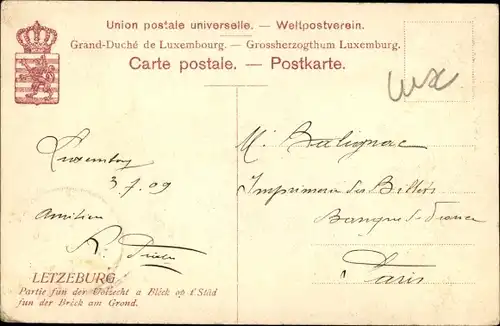 Union postale universelle. — Weltpostverein.
Grand-Duché de Luxembourg. — Grossherzogthum Luxemburg.
Carte postale. — Postkarte.
Lux
Luxembourg
3.7.09
Amitiés
M.
Imprimerie des Billets
Banque de France
Paris
LETZEBURG
Partie fun der Uelzecht a Bléck op d'Stâd
fun der Bréck am Grond.